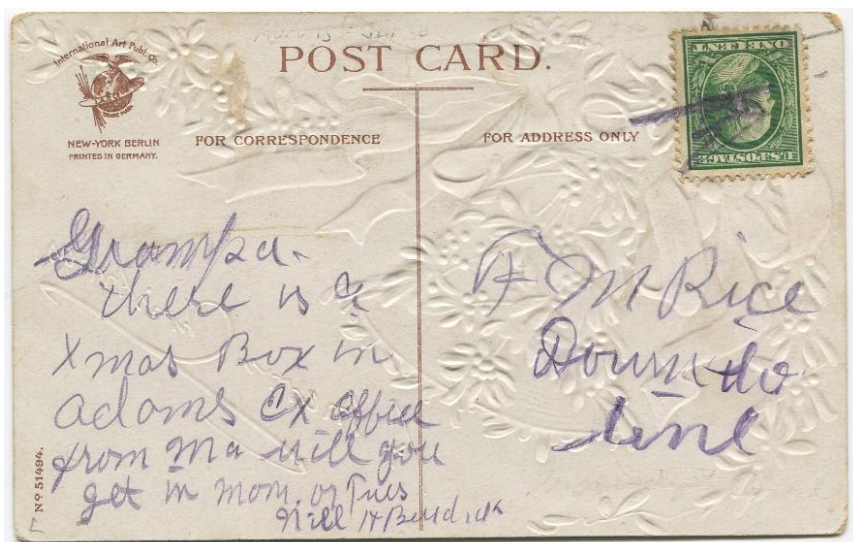 International Art Publ. Co.
NEW-YORK BERLIN
PRINTED IN GERMANY.
POST CARD.
FOR CORRESPONDENCE
FOR ADDRESS ONLY
U.S. POSTAGE
ONE CENT
Grampa.
there is a
Xmas Box in
Adams Ex office
from Ma will you
get in Mon. or Tues
Will H
F M Rice
Down
line
Nº 51494.